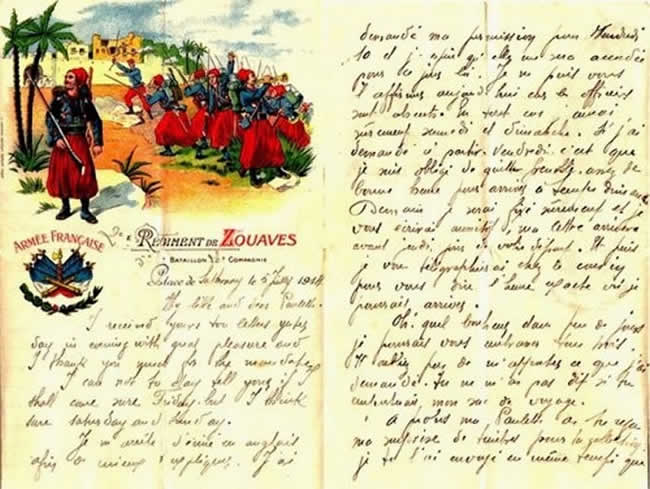 ARMÉE FRANÇAISE
2e RÉGIMENT DE ZOUAVES
BATAILLON 12e COMPAGNIE
Place de le 5 1914
My little and dear Paulette
I received yours two letters yester
day in evening with great pleasure and
I thank you much for the mandate
I can not to day tell yours if I
shall come sure Friday but I think
sure saturday and sunday.
Je m'arrête d'écrire en anglais
afin de mieux m'expliquer. J'ai
demandé ma permission pour Vendredi
10 et j'espère qu'elle me sera accordée
pour ce jour là. Je ne puis vous
l'affirmer aujourd'hui car les officiers
sont absents. En tout cas
surement samedi et dimanche. Si j'ai
demandé à partir Vendredi c'est que
je suis obligé de quitter de
bonne heure pour arriver à
Demain je serai fixé surement et je
vous écrirai aussitôt, ma lettre arrivera
avant jeudi, jour de votre départ. Et puis
je vous télégraphierai chez le
pour vous dire l'heure exacte où je
pourrais arriver.
Oh! quel bonheur dans peu de jours
je pourrais vous embrasser tous trois
N'oubliez pas de m'attendre ce que j'ai
demandé. Tu ne m'as pas dit si tu
mon sac de voyage.
A propos ma Paulette as tu reçu
ma de timbres pour ta collection
je te l'ai envoyé en même temps que